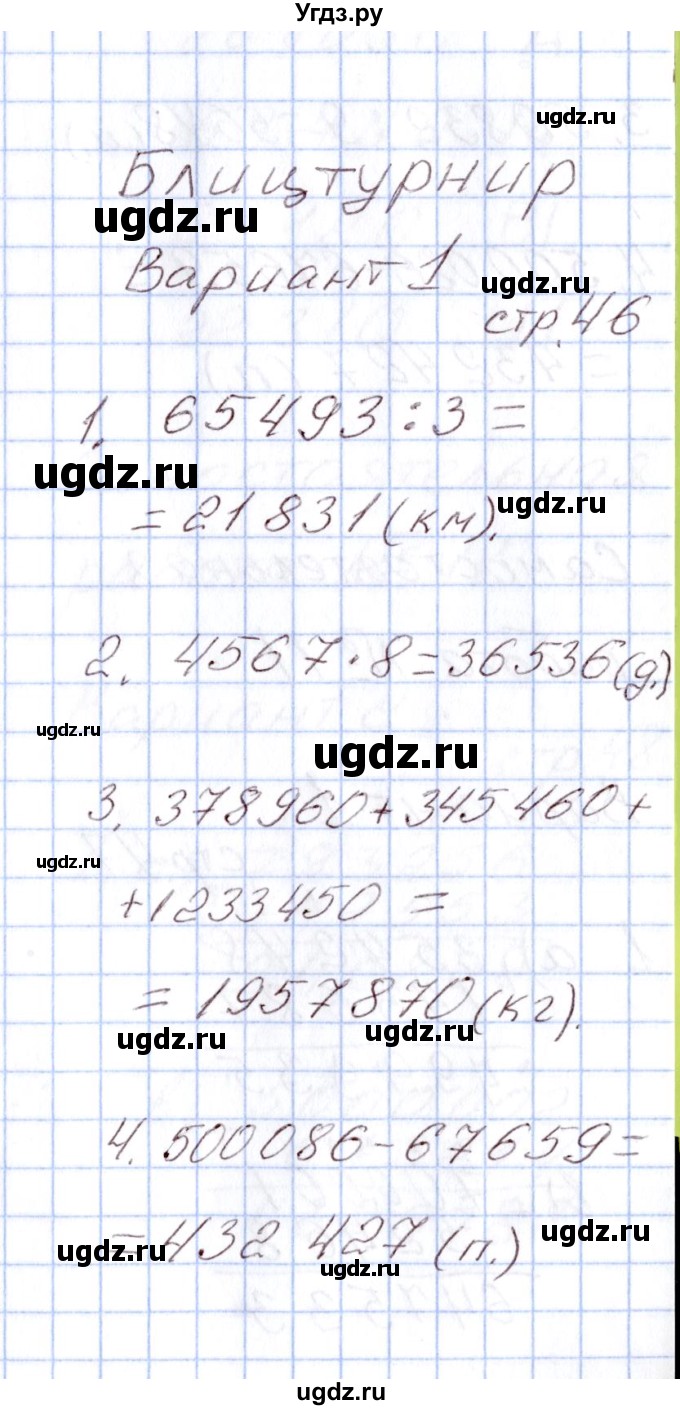 Угдз.ру
ugdz.ru
Блицтурнир
ugdz.ru
Вариант 1
ugdz.ru
стр. 46
1. 65493 : 3 =
ugdz.ru
= 21 831 (км).
ugdz.ru
2. 4567 · 8 = 36536 (д.)
ugdz.ru
ugdz.ru
3. 378960 + 345460 +
ugdz.ru
+ 1233450 =
= 1957870 (кг).
ugdz.ru
ugdz.ru
4. 500086 - 67659 =
= 432 427 (п.)
ugdz.ru
ugdz.ru
ugdz.ru
ugdz.ru